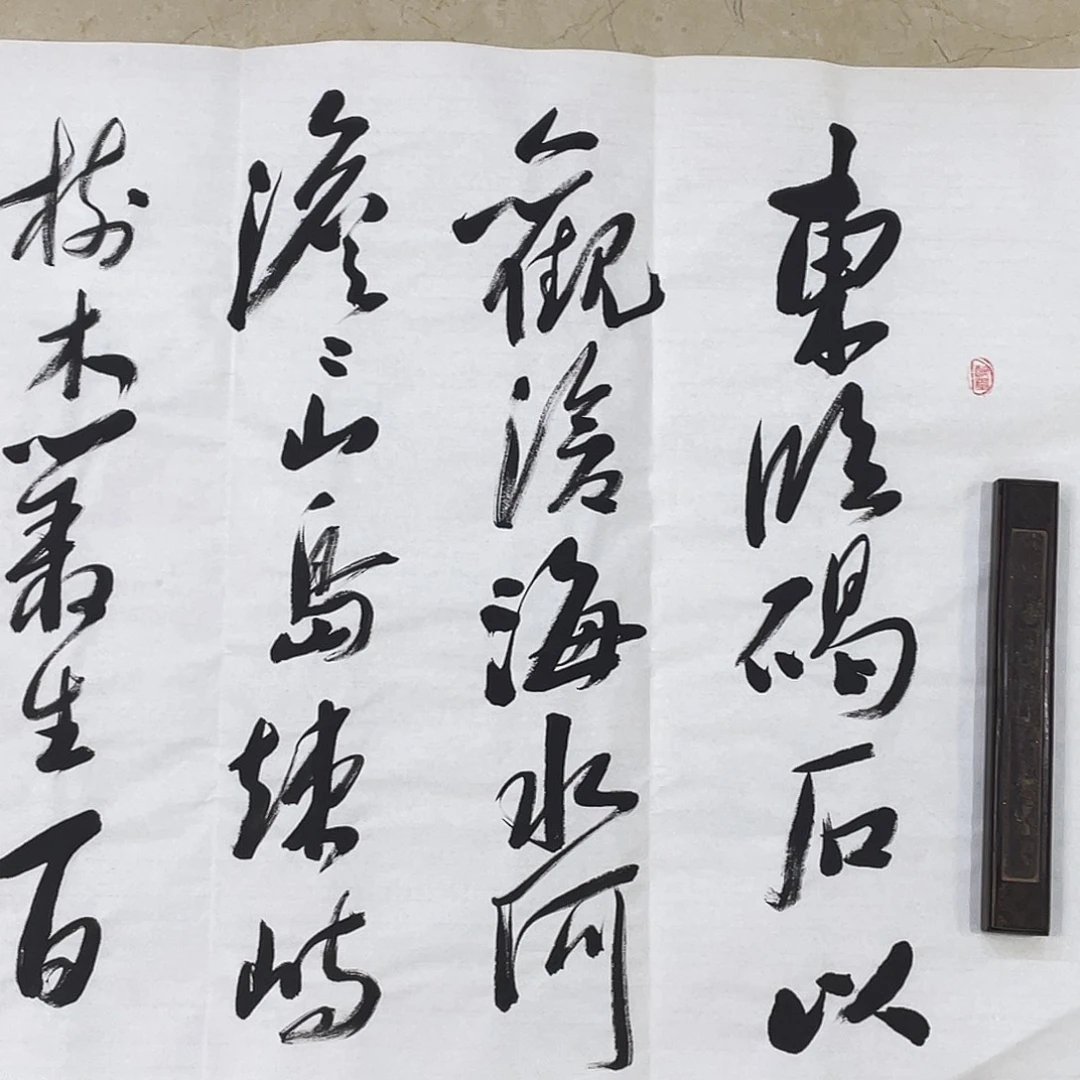 東临碣石以
觀滄海水何
澹〻山島竦峙
樹木叢生百